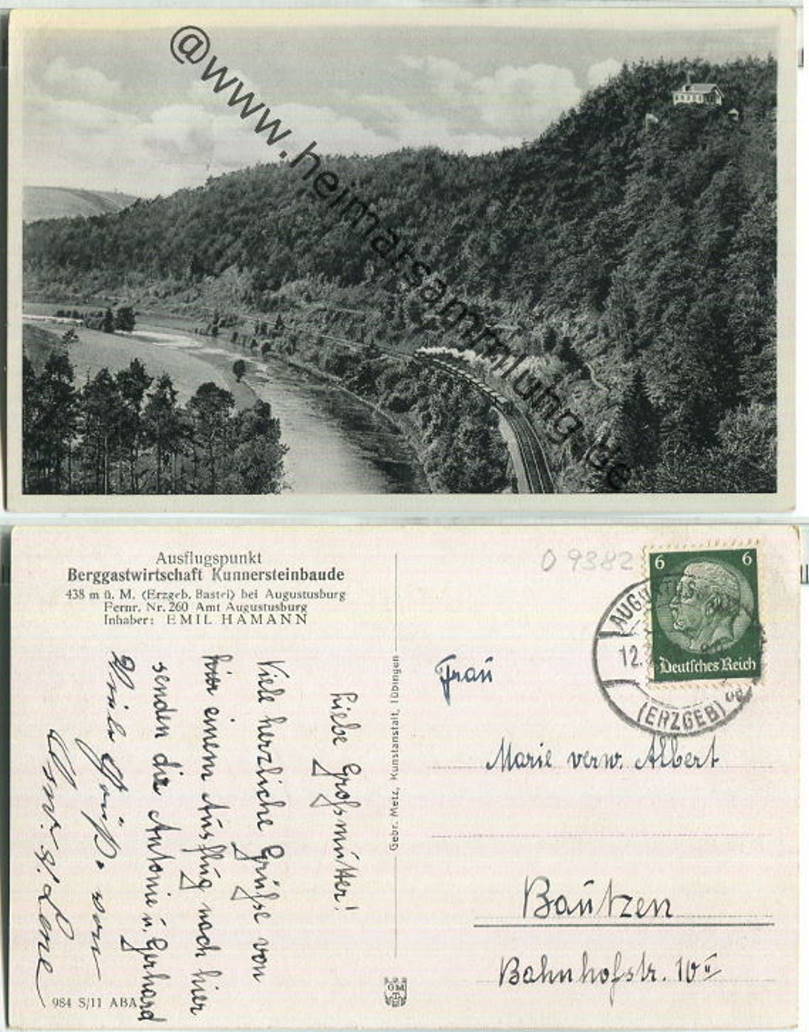 @www.heimatsammlung.de
Ausflugspunkt
Berggastwirtschaft Kunnersteinbaude
438 m ü. M. (Erzgeb. Bastei) bei Augustusburg
Fernr. Nr. 260 Amt Augustusburg
Inhaber: EMIL HAMANN
Liebe Großmutter!
Viele herzliche Grüße von
hier einem Ausflug nach hier
senden dir Antonie u. Gerhard
Viele Grüße von
Lene
984 S/11 ABA
Gebr. Metz, Kunstanstalt, Tübingen
O 9382
6 6
Deutsches Reich
12.
(ERZGEB)
Frau
Marie verw. Albert
Bautzen
Bahnhofstr. 10 II